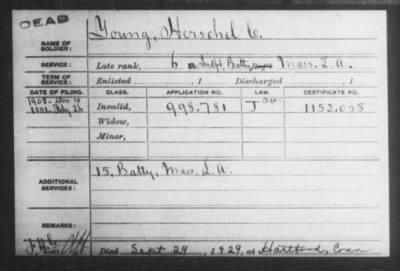 DEAD
NAME OF SOLDIER: Young, Herschel C.
SERVICE: Late rank, 6 Batty, Mass. L. A.
TERM OF SERVICE: Enlisted , 1 Discharged , 1
DATE OF FILING. CLASS. APPLICATION NO. LAW. CERTIFICATE NO.
Invalid, 998.781 J 1152.098
Widow,
Minor,
ADDITIONAL SERVICES: 15, Batty, Mass. L. A.
REMARKS:
Died Sept 29, 1929, at Hartford, Conn